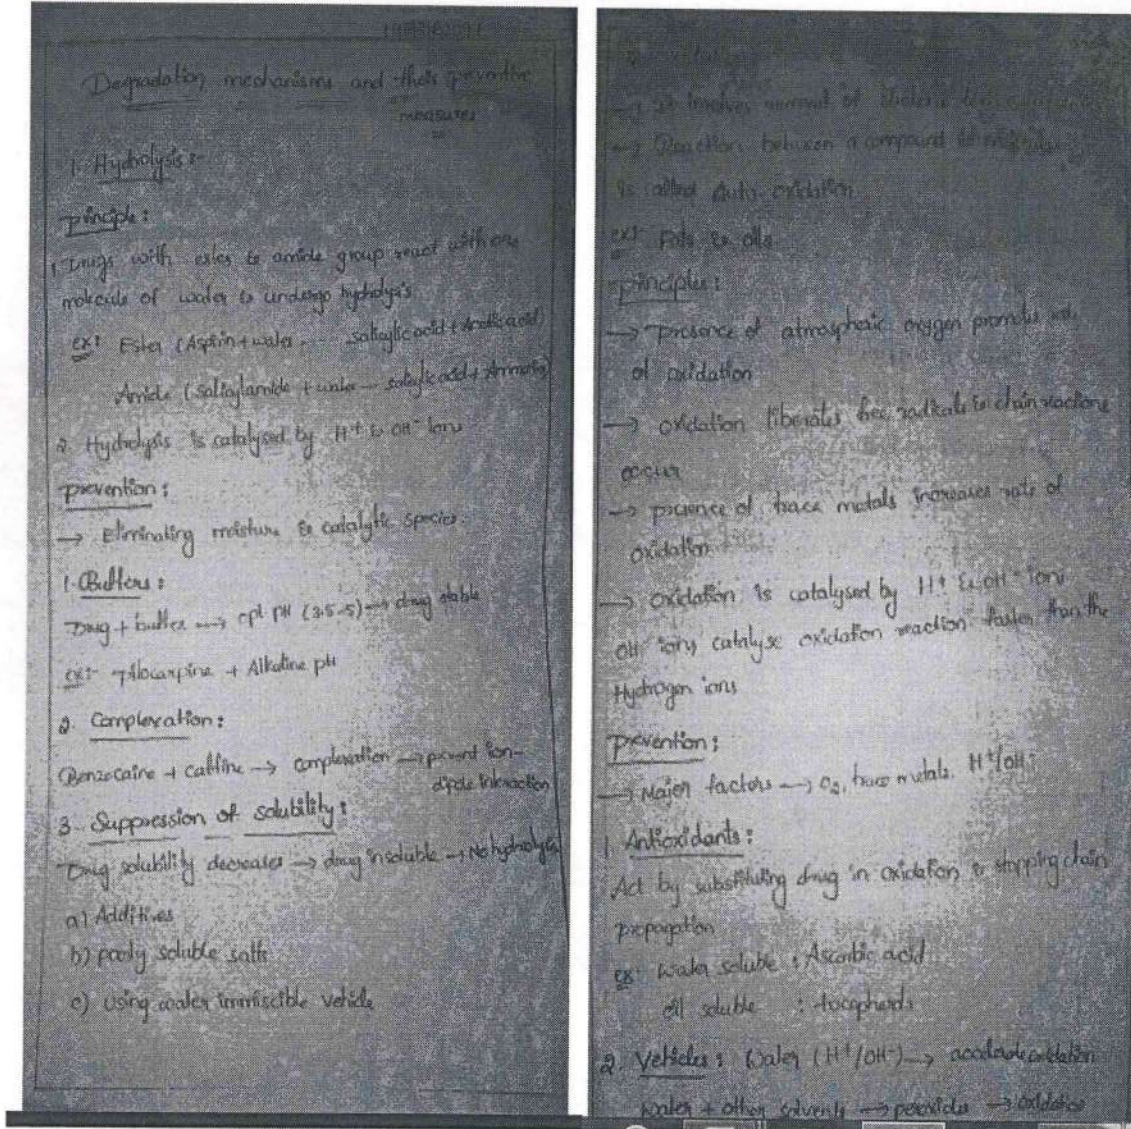 Degradation mechanisms and their preventive
measures
1. Hydrolysis :-
principle :
1. Drugs with ester & amide group react with one
molecule of water & undergo hydrolysis
ex: Ester (Aspirin + water --- salicylic acid + Acetic acid)
Amide (salicylamide + water --- salicylic acid + Ammonia)
2. Hydrolysis is catalysed by H+ & OH- ions
prevention :
→ Eliminating moisture & catalytic species.
1. Buffers :
Drug + buffer → opt pH (3.5-5) → drug stable
ex:- pilocarpine + Alkaline pH
2. Complexation :
Benzocaine + caffine → complexation → prevent ion-
dipole interaction
3. Suppression of solubility :
Drug solubility decreases → drug insoluble → No hydrolysis
a) Additives
b) poorly soluble salts
c) Using water immiscible vehicle
→ It involves removal of
→ Reaction between a compound &
is called Auto oxidation
ex: Fats & oils
principles :
→ presence of atmospheric oxygen promotes
of oxidation
→ oxidation liberates free radicals & chain reactions
occur
→ presence of trace metals increases rate of
oxidation
→ oxidation is catalysed by H+ & OH- ions
OH- ions catalyse oxidation reaction faster than the
Hydrogen ions
prevention :
→ Major factors → O2, trace metals, H+/OH-
1. Antioxidants :
Act by substituting drug in oxidation & stopping chain
propagation
ex: Water soluble : Ascorbic acid
oil soluble : tocopherols
2. Vehicles : Water (H+/OH-) → accelerate oxidation
water + other solvents → peroxides → oxidation